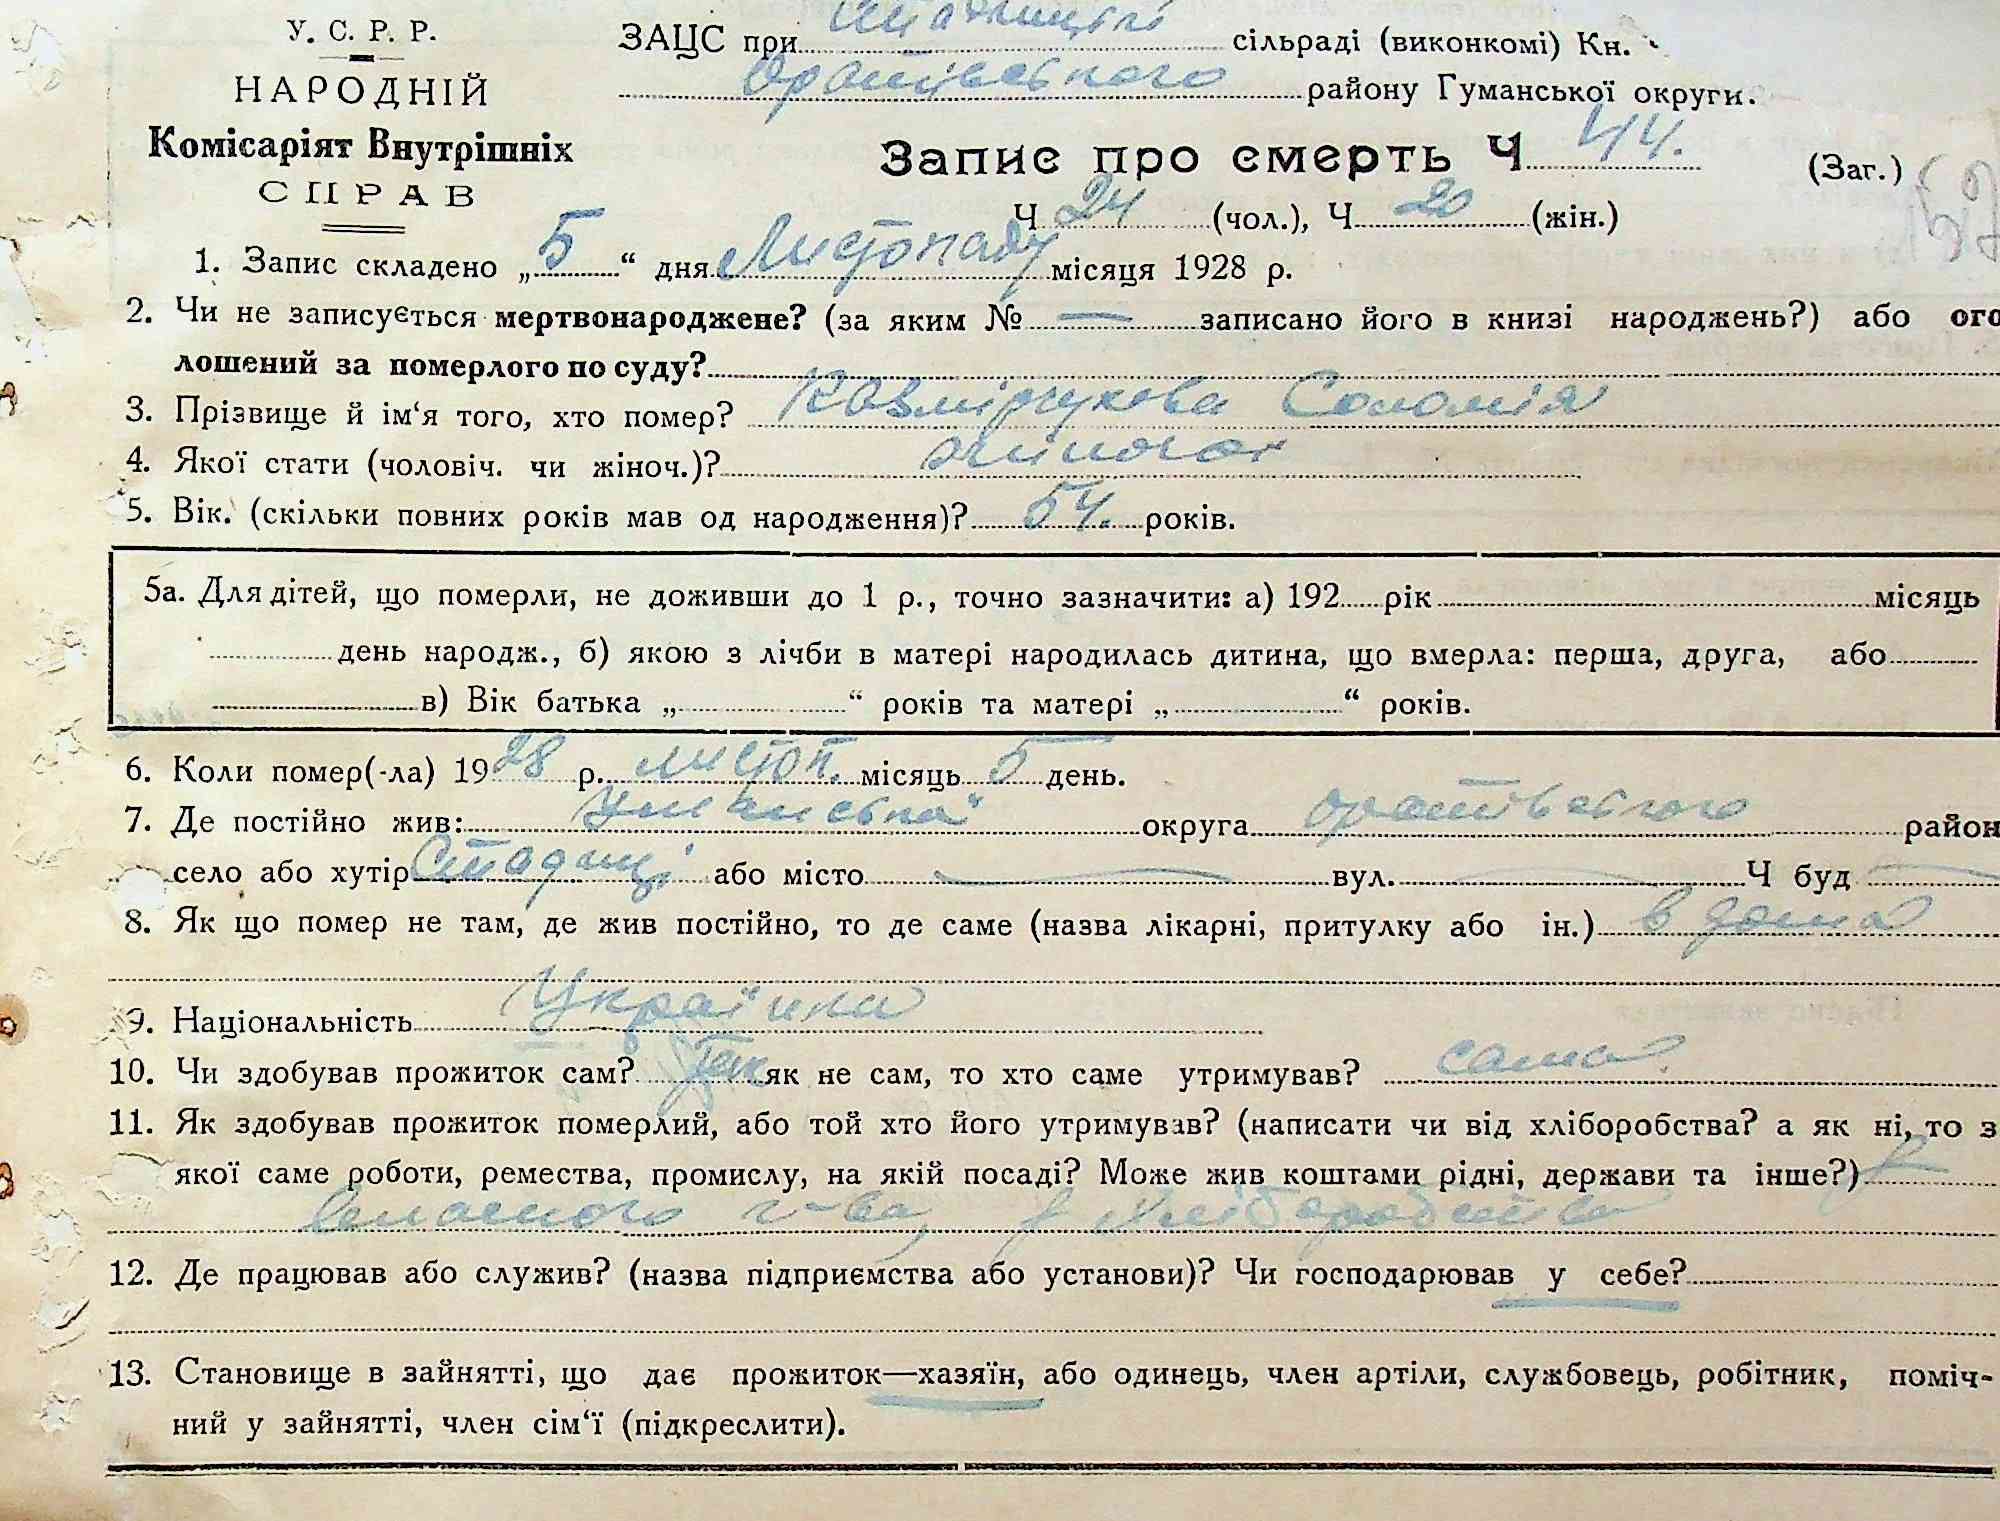 У. С. Р. Р.
НАРОДНІЙ
Комісаріят Внутрішніх
СПРАВ
ЗАЦС при Стадницькій сільраді (виконкомі) Кн.
Оратівського району Гуманської округи.
Запис про смерть Ч 44. (Заг.)
Ч 24 (чол.), Ч 20 (жін.)
1. Запис складено „5“ дня Листопаду місяця 1928 р.
2. Чи не записується мертвонароджене? (за яким № — записано його в книзі народжень?) або ого
лошений за померлого по суду?
3. Прізвище й ім‘я того, хто помер? Казмірчукова Соломія
4. Якої стати (чоловіч. чи жіноч.)? жіночої
5. Вік. (скільки повних років мав од народження)? 54. років.
5а. Для дітей, що померли, не доживши до 1 р., точно зазначити: а) 192 рік місяць
день народж., б) якою з лічби в матері народилась дитина, що вмерла: перша, друга, або
в) Вік батька „ “ років та матері „ “ років.
6. Коли помер(-ла) 1928 р. листоп. місяць 5 день.
7. Де постійно жив: Уманської округа Оратівського район
село або хутір Стадниці або місто — вул. — Ч буд —
8. Як що помер не там, де жив постійно, то де саме (назва лікарні, притулку або ін.) в дома
9. Національність Українка
10. Чи здобував прожиток сам? Так як не сам, то хто саме утримував? сама.
11. Як здобував прожиток померлий, або той хто його утримував? (написати чи від хліборобства? а як ні, то з
якої саме роботи, ремества, промислу, на якій посаді? Може жив коштами рідні, держави та інше?) з
власного г-ва, з хліборобства
12. Де працював або служив? (назва підприємства або установи)? Чи господарював у себе?
13. Становище в зайнятті, що дає прожиток—хазяїн, або одинець, член артіли, службовець, робітник, поміч-
ний у зайнятті, член сім‘ї (підкреслити).